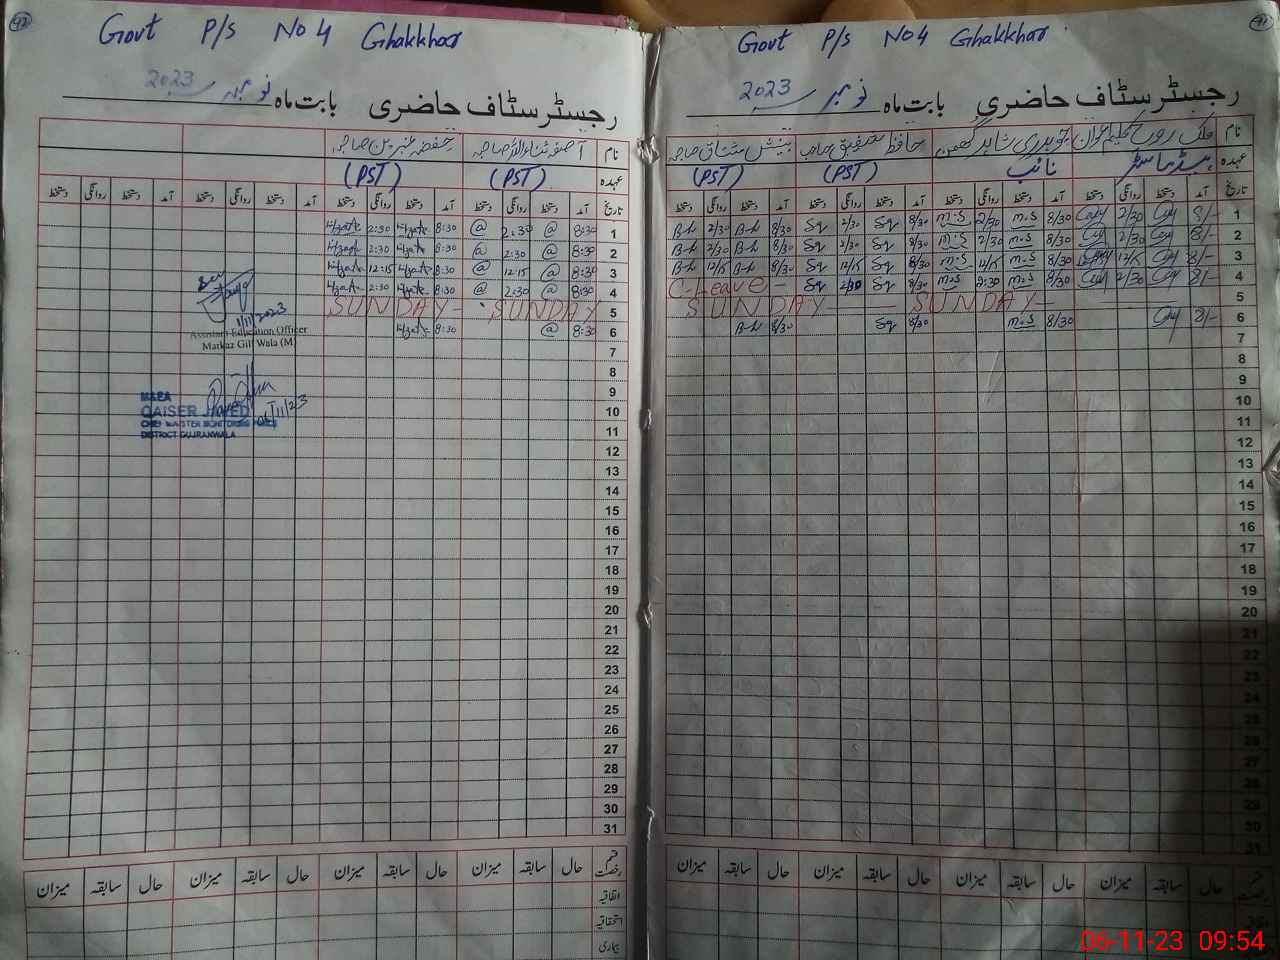 91
Govt P/s No 4 Ghakkhar
رجسٹر سٹاف حاضری بابت ماہ نومبر 2023
نام
عہدہ ہیڈماسٹر نائب (PST) (PST)
تاریخ آمد دستخط روانگی دستخط آمد دستخط روانگی دستخط آمد دستخط روانگی دستخط آمد دستخط روانگی دستخط
1 8/- 2/30 8/30 m.S 2/30 m.S 8/30 Sq 2/30 Sq 8/30 2/30
2 8/- 2/30 8/30 m.S 2/30 m.S 8/30 Sq 2/30 Sq 8/30 2/30
3 8/- 12/15 8/30 m.S 12/15 m.S 8/30 Sq 12/15 Sq 8/30 12/15
4 8/- 2/30 8/30 m.S 2:30 m.S 8/30 Sq 2/30 Sq C-Leave
5 SUNDAY SUNDAY
6 8/- 8/30 m.S 8/30 Sq 8/30
7
8
9
10
11
12
13
14
15
16
17
18
19
20
21
22
23
24
25
26
27
28
29
30
31
قسم رخصت حال سابقہ میزان حال سابقہ میزان حال سابقہ میزان حال سابقہ میزان
92
Govt P/s No 4 Ghakkhar
رجسٹر سٹاف حاضری بابت ماہ نومبر 2023
نام
عہدہ (PST) (PST)
تاریخ آمد دستخط روانگی دستخط آمد دستخط روانگی دستخط آمد دستخط روانگی دستخط آمد دستخط روانگی دستخط
1 8:30 @ 2:30 @ 8:30 2:30
2 8:30 @ 2:30 @ 8:30 2:30
3 8:30 @ 12:15 @ 8:30 12:15
4 8:30 @ 2:30 @ 8:30 2:30
5 SUNDAY SUNDAY
6 8:30 @ 8:30
7
8
9
10
11
12
13
14
15
16
17
18
19
20
21
22
23
24
25
26
27
28
29
30
31
1/11/2023
Assistant Education Officer
Markaz Gill Wala (M)
M&EA
QAISER JAVED
CHIEF MINISTER MONITORING FORCE
DISTRICT GUJRANWALA
06/11/23
قسم رخصت حال سابقہ میزان حال سابقہ میزان حال سابقہ میزان حال سابقہ میزان
اتفاقیہ
استحقاقیہ
بیماری
06-11-23 09:54